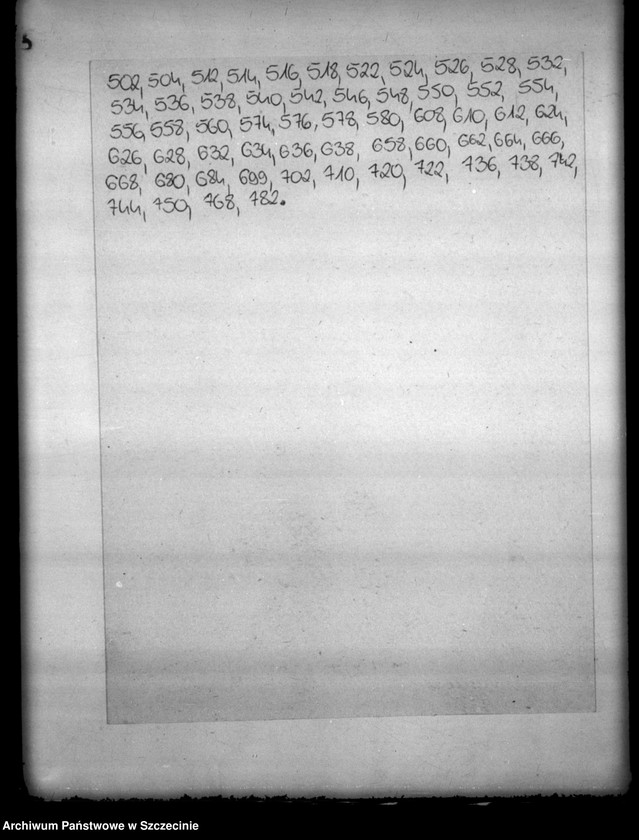 502, 504, 512, 514, 516, 518, 522, 524, 526, 528, 532,
534, 536, 538, 540, 542, 546, 548, 550, 552, 554,
556, 558, 560, 574, 576, 578, 580, 608, 610, 612, 624,
626, 628, 632, 634, 636, 638, 658, 660, 662, 664, 666,
668, 680, 684, 699, 702, 710, 720, 722, 736, 738, 742,
744, 750, 768, 782.
Archiwum Państwowe w Szczecinie